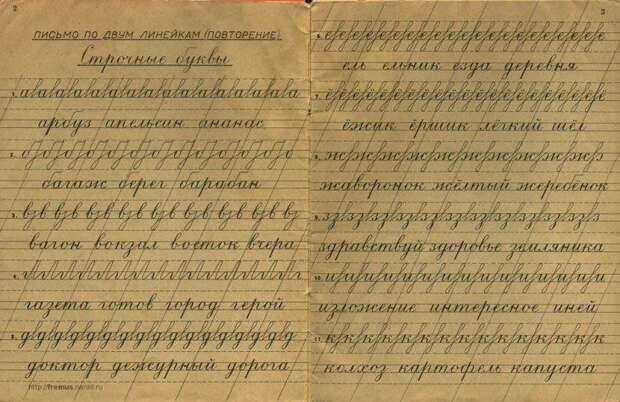 2
ПИСЬМО ПО ДВУМ ЛИНЕЙКАМ (ПОВТОРЕНИЕ)
Строчные буквы
1. а а а а а а а а а а а а а а а а а
арбуз апельсин ананас
2. б б б б б б б б б б б
багаж берег барабан
3. в в в в в в в в в в в
вагон вокзал восток вчера
4. г г г г г г г г г г г г г г г г
газета готов город герой
5. д д д д д д д д д д д д д д д д
доктор дежурный дорога
http://fremus.narod.ru
3
6. е е е е е е е е е е е е е е е е
ель ельник езда деревня
7. ё ё ё ё ё ё ё ё ё ё ё ё ё ё ё ё
ёжик ёршик лёгкий шёл
8. ж ж ж ж ж ж ж ж ж ж ж
жаворонок жёлтый жеребёнок
9. з з з з з з з з з з з з з з
здравствуй здоровье земляника
10. и и и и и и и и и и и и и
изложение интересное иней
11. к к к к к к к к к к к к к
колхоз картофель капуста